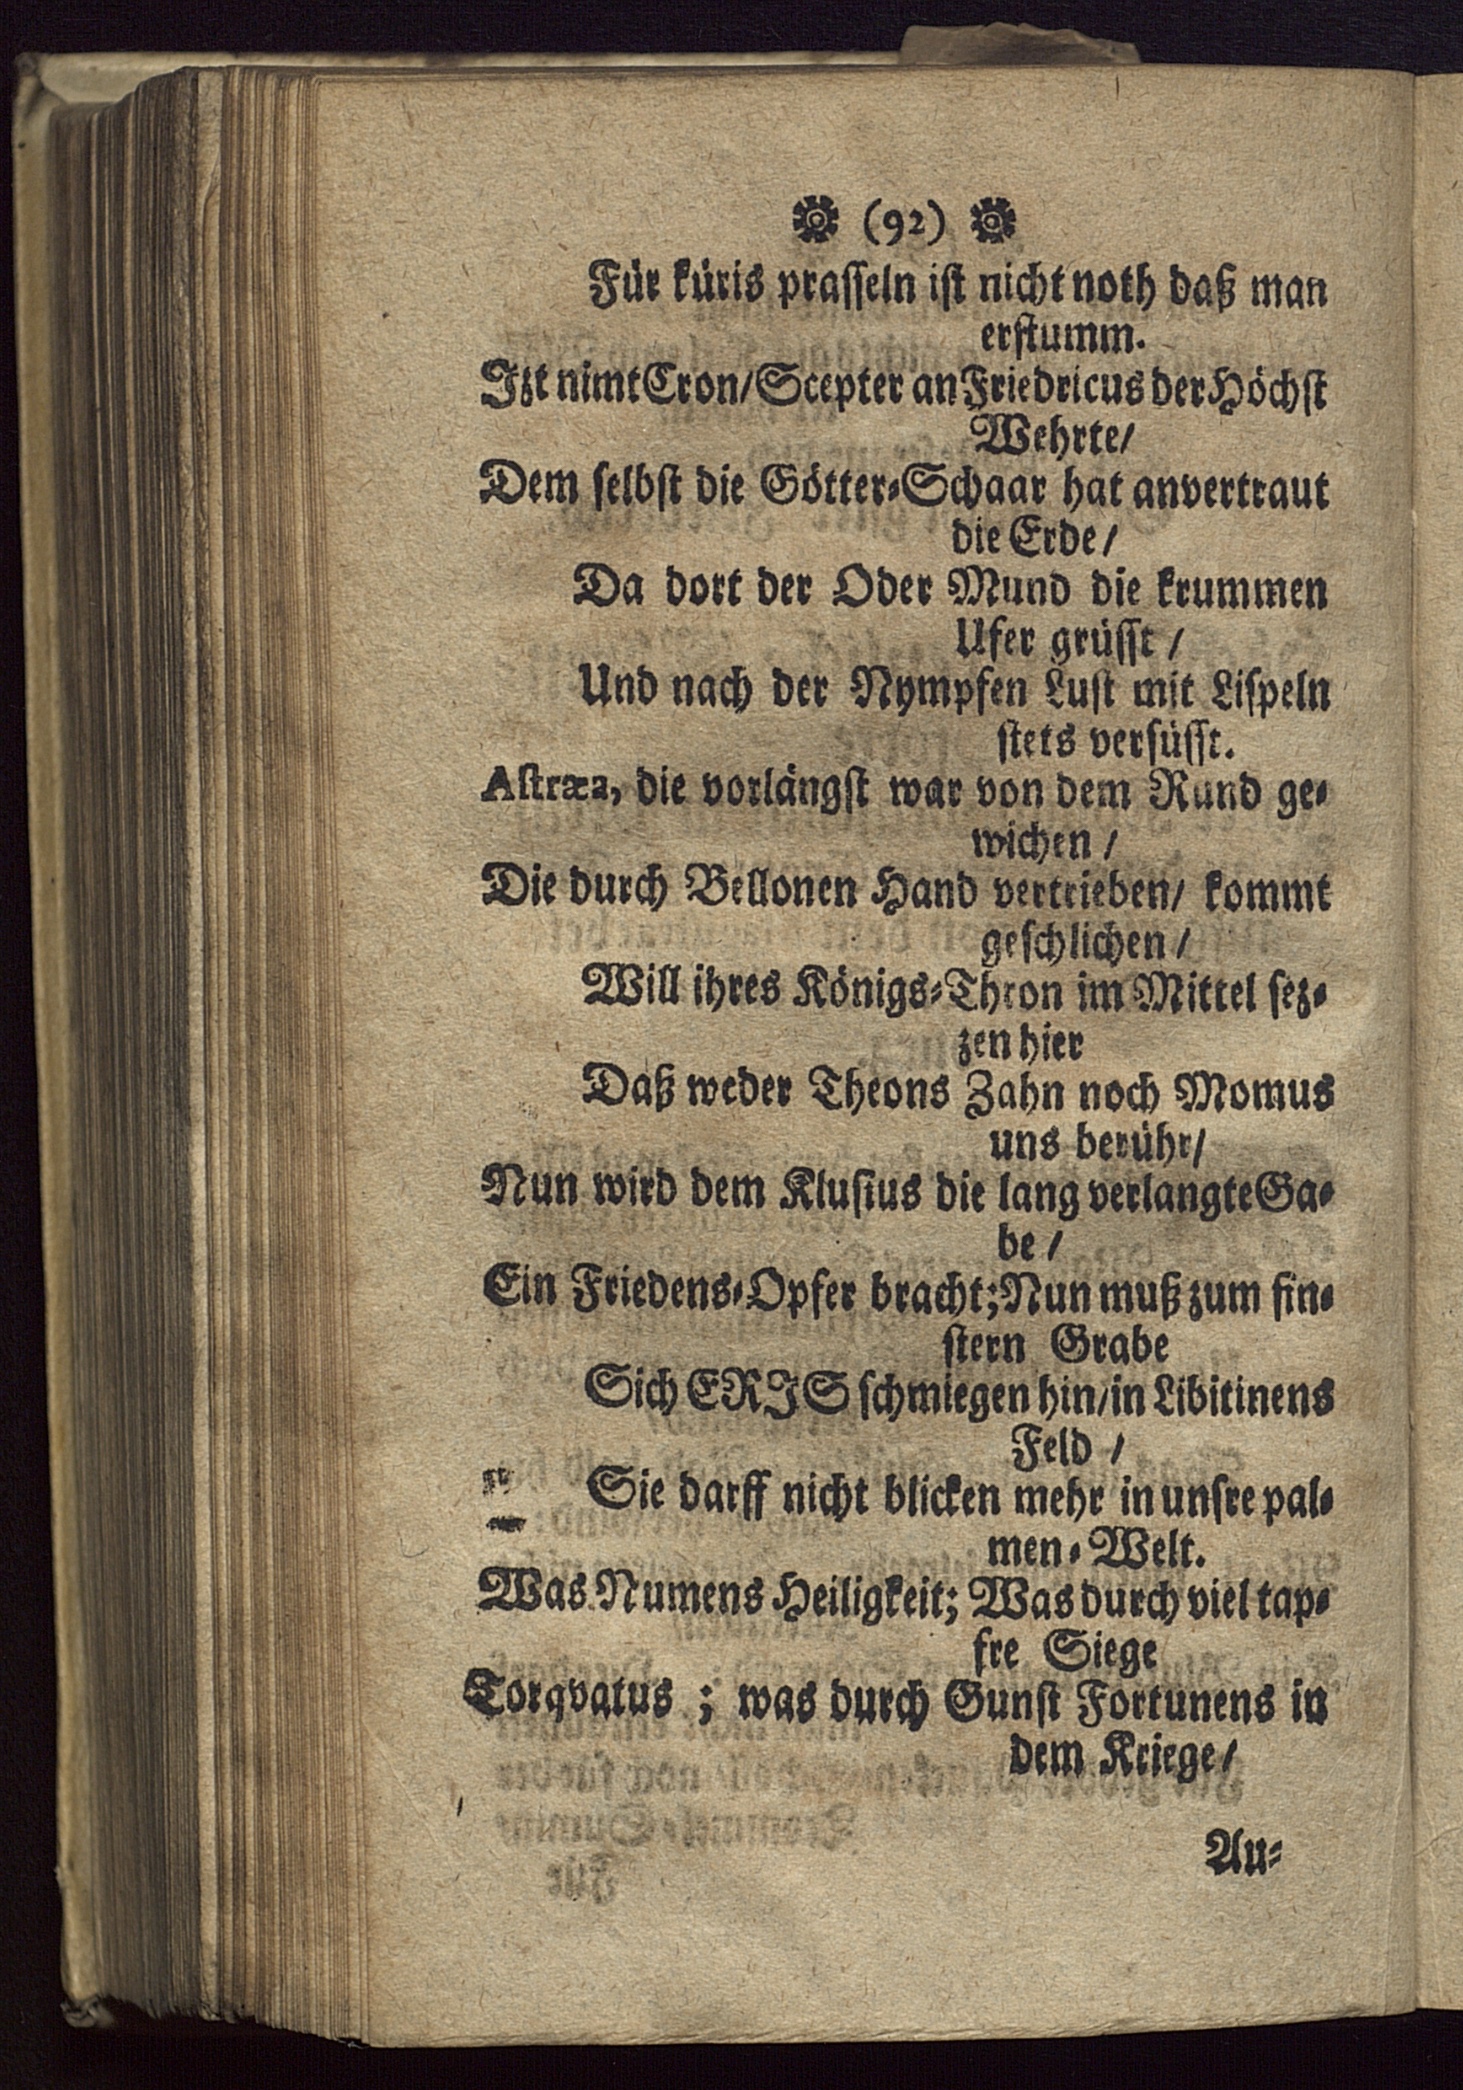 (92)
Für küris prasseln ist nicht noth daß man
erstumm.
Izt nimt Cron/ Scepter an Friedricus der Höchst
Wehrte/
Dem selbst die Götter-Schaar hat anvertraut
die Erde/
Da dort der Oder Mund die krummen
Ufer grüsst /
Und nach der Nympfen Lust mit Lispeln
stets versüsst.
Astræa, die vorlängst war von dem Rund ge-
wichen /
Die durch Bellonen Hand vertrieben/ kommt
geschlichen /
Will ihres Königs-Thron im Mittel sez-
zen hier
Daß weder Theons Zahn noch Momus
uns berühr/
Nun wird dem Klusius die lang verlangte Ga-
be /
Ein Friedens-Opfer bracht; Nun muß zum fin-
stern Grabe
Sich ERIS schmiegen hin/ in Libitinens
Feld /
Sie darff nicht blicken mehr in unsre pal-
men-Welt.
Was Numens Heiligkeit; Was durch viel tap-
fre Siege
Torqvatus ; was durch Gunst Fortunens in
dem Kriege/
Au-